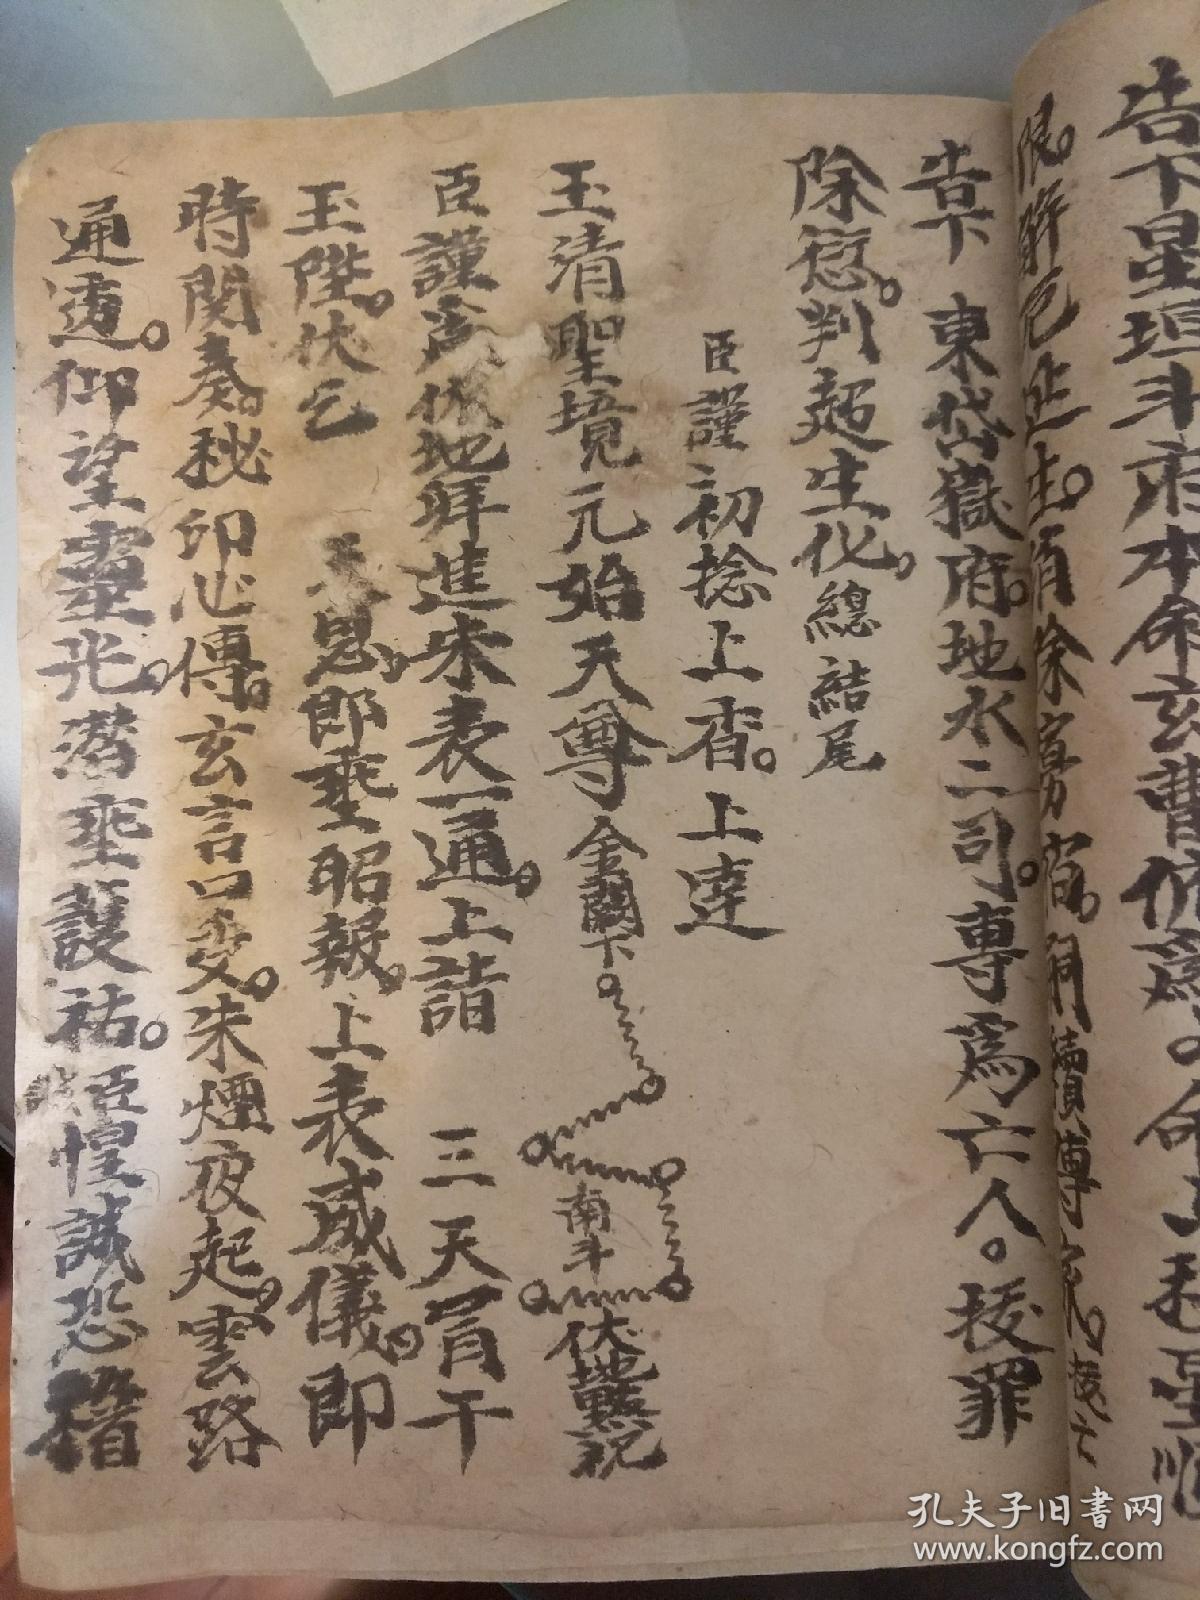 告下星垣斗府本命玄曹修爲。命
限。解厄
除
告下 東岱嶽府。地水二司。專爲亡人。拔罪
除愆。判超生化。總結尾
臣謹初捻上香。上達
玉清聖境元始天尊金闕下。南斗 伏地默祝
臣謹 伏地拜進朱表一通。上詣 三天門下
玉陛。伏乞 天恩。即垂昭報。上表威儀。即
時関奏。秘印心傳。玄言口受。朱煙夜起。雲路
通透。仰望靈光。潛垂護祐。臣惶誠恐稽
孔夫子旧书网
www.kongfz.com